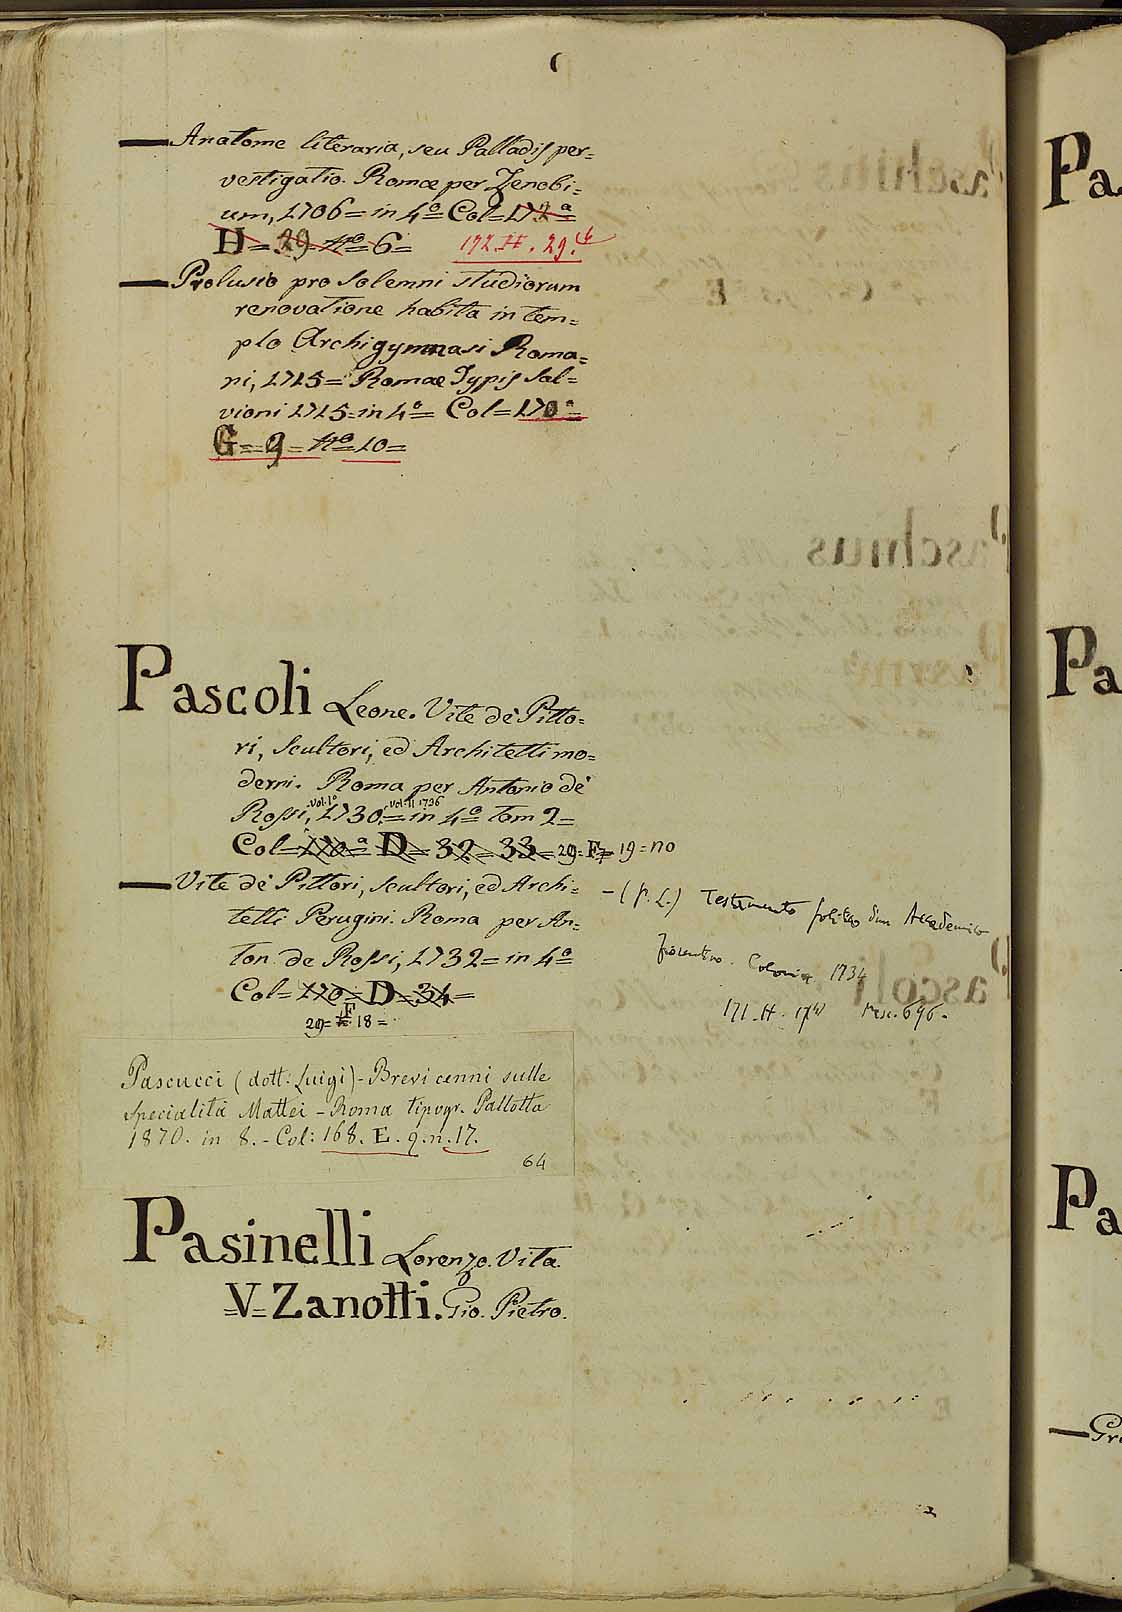 — Anatome literaria, seu Palladis per=
vestigatio. Romæ per Zenobi=
um, 1706= in 4º Col= 172ª
H= 29= Nº= 6= 172. H. 29. 6
— Prolusio pro solemni studiorum
renovatione habita in tem=
plo Archigymnasi Roma=
ni, 1715= Romæ Typis Sal=
vioni 1715= in 4º= Col= 170ª=
G= 9= Nº= 10=
Pascoli Leone. Vite de' Pitto=
ri, Scultori, ed Architetti mo=
derni. Roma per Antonio de'
vol. Iº vol. II 1736
Rossi, 1730.= in 4º= tom 2=
Col= 170ª= D= 32= 33= 29= F= 19= no
— Vite de' Pittori, Scultori, ed Archi=
tetti Perugini. Roma per An=
ton. de Rossi, 1732= in 4º=
Col= 170= D= 34=
29= F= 18=
— (P. L.) Testamento politico d'un Accademico
fiorentino. Colonia 1734
171. H. 17 Misc. 696.
Pascucci (dott: Luigi) - Brevi cenni sulle
specialità Mattei - Roma tipogr. Pallotta
1870. in 8. - Col: 168. E. 9. n. 17.
64
Pasinelli Lorenzo. Vita.
=V= Zanotti. Gio. Pietro.
Pa
Pa
Pa
— Gr